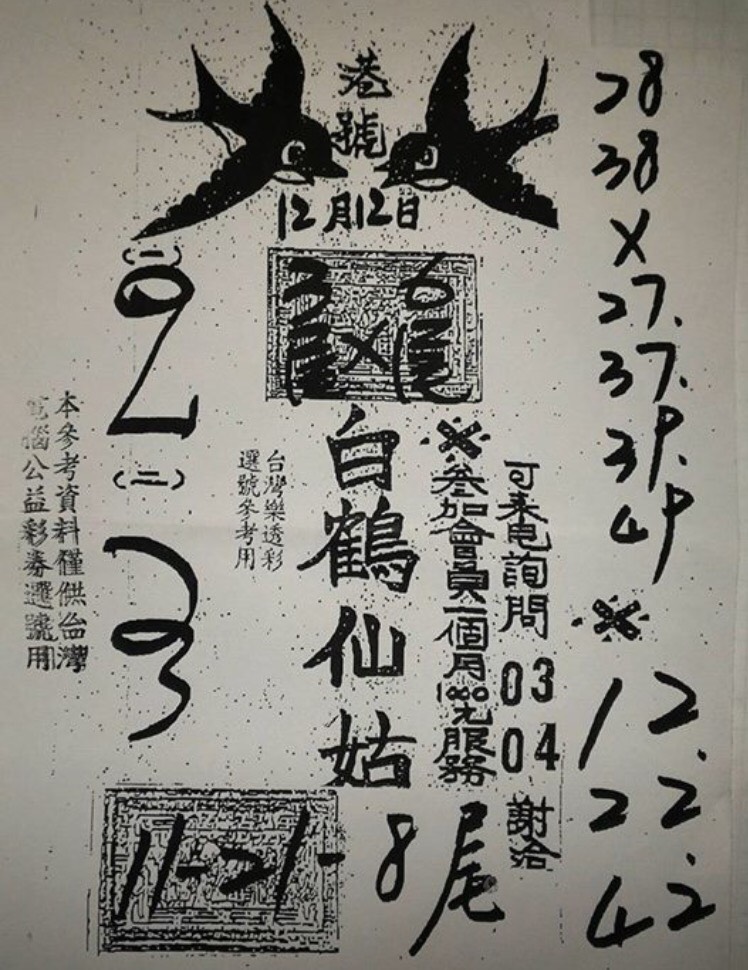 港號
12月12日
白鶴仙姑
台灣樂透彩
選號參考用
本參考資料僅供台灣
電腦公益彩券選號用
(一)
(二)
※
參加會員一個月1000元服務
可来电詢問
03
04
謝洽
28
38
X
27.
37.
39.
49
※
12.
22.
42
11-21-8尾